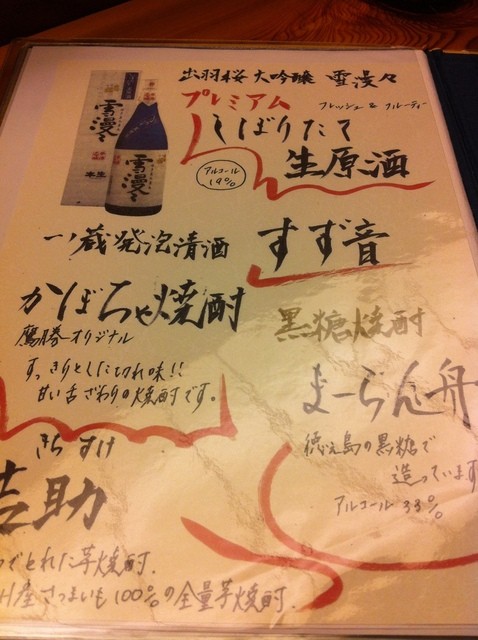 出羽桜 大吟醸 雪漫々
プレミアム
フレッシュ & フルーティ
しぼりたて
生原酒
アルコール
19%
雪漫々
雪漫々
一ノ蔵発泡清酒
すず音
かぼちゃ焼酎
鷹勝オリジナル
すっきりとした切れ味!!
甘い舌ざわりの焼酎です。
黒糖焼酎
まーらん舟
徳之島の黒糖で
造っています
アルコール 33%
きちすけ
吉助
でとれた芋焼酎.
産さつまいも100%の全量芋焼酎.